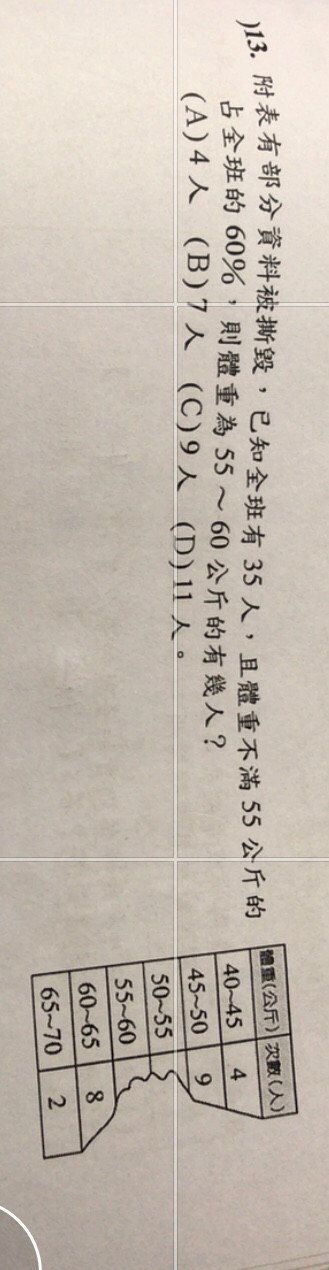 )13. 附表有部分資料被撕毀，已知全班有 35 人，且體重不滿 55 公斤的
占全班的 60%，則體重為 55～60 公斤的有幾人？
(A)4 人 (B)7 人 (C)9 人 (D)11 人。
體重(公斤) 次數(人)
40~45 4
45~50 9
50~55
55~60
60~65 8
65~70 2